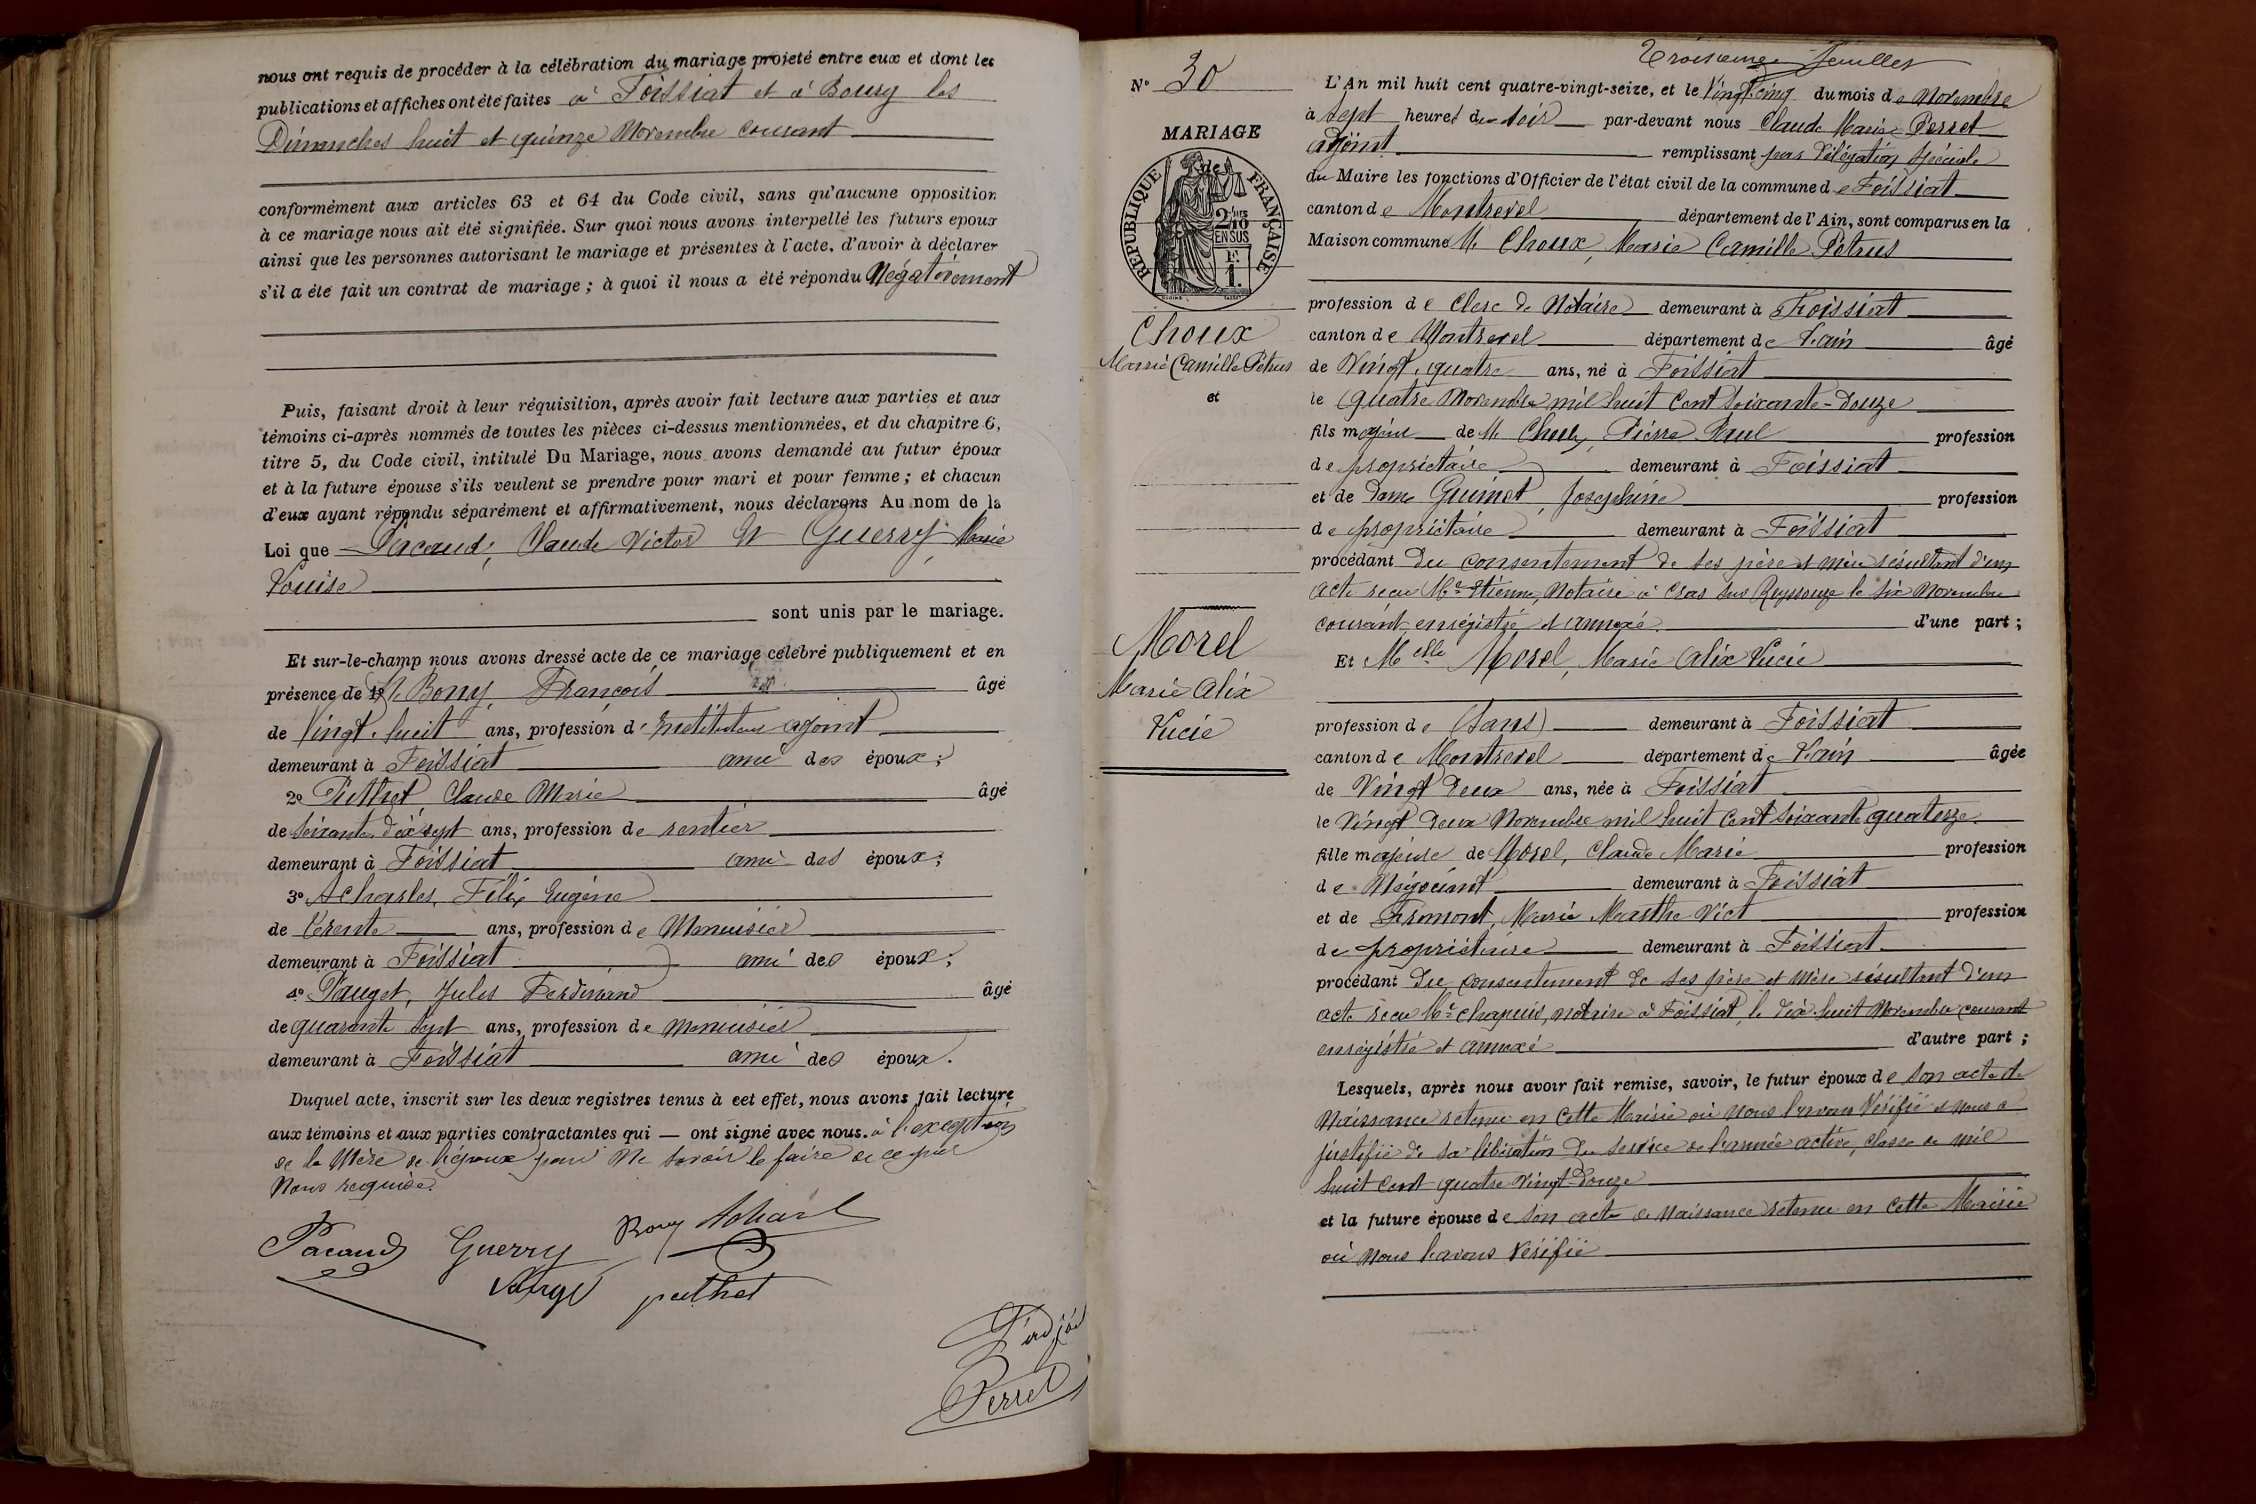 nous ont requis de procéder à la célébration du mariage projeté entre eux et dont les
publications et affiches ont été faites à Foissiat et à Bourg les
Dimanches huit et quinze Novembre courant
conformément aux articles 63 et 64 du Code civil, sans qu'aucune opposition
à ce mariage nous ait été signifiée. Sur quoi nous avons interpellé les futurs epoux
ainsi que les personnes autorisant le mariage et présentes à l'acte, d'avoir à déclarer
s'il a été fait un contrat de mariage ; à quoi il nous a été répondu Négativement
Puis, faisant droit à leur réquisition, après avoir fait lecture aux parties et aux
témoins ci-après nommés de toutes les pièces ci-dessus mentionnées, et du chapitre 6,
titre 5, du Code civil, intitulé Du Mariage, nous avons demandé au futur époux
et à la future épouse s'ils veulent se prendre pour mari et pour femme ; et chacun
d'eux ayant répondu séparément et affirmativement, nous déclarons Au nom de la
Loi que Pacaud, Claude Victor Et Guerry, Marie
Louise
sont unis par le mariage.
Et sur-le-champ nous avons dressé acte de ce mariage célébré publiquement et en
présence de 1º M. Bony, François âgé
de Vingt-huit ans, profession d'Instituteur adjoint
demeurant à Foissiat ami des époux ;
2º Puthet, Claude Marie âgé
de soixante-dix sept ans, profession de rentier
demeurant à Foissiat ami des époux ;
3º Acharles, Félix Eugène
de trente ans, profession de Menuisier
demeurant à Foissiat ami des époux ;
4º Pauget, Jules Ferdinand âgé
de quarante sept ans, profession de Menuisier
demeurant à Foissiat ami des époux.
Duquel acte, inscrit sur les deux registres tenus à cet effet, nous avons fait lecture
aux témoins et aux parties contractantes qui — ont signé avec nous. à l'exception
de la Mère de l'époux pour Ne savoir le faire de ce par
Nous requise.
Pacaud Guerry Bony Acharl
puthet
Perret
Troisième feuillet
Nº 30
MARIAGE
RÉPUBLIQUE FRANÇAISE
2/10
EN SUS
Choux
Marie Camille Pétrus
et
Morel
Marie Alix
Lucie
L'An mil huit cent quatre-vingt-seize, et le Vingt-cinq du mois de Novembre
à Sept heures du soir par-devant nous Claude Marie Perret
adjoint remplissant par délégation spéciale
du Maire les fonctions d'Officier de l'état civil de la commune de Foissiat
canton de Montrevel département de l'Ain, sont comparus en la
Maison commune M. Choux, Marie Camille Pétrus
profession de Clerc de Notaire demeurant à Foissiat
canton de Montrevel département de l'ain âgé
de Vingt-quatre ans, né à Foissiat
le quatre Novembre mil huit Cent soixante-douze
fils majeur de M. Choux, Pierre Paul profession
de propriétaire demeurant à Foissiat
et de Dame Guimet, Joséphine profession
de propriétaire demeurant à Foissiat
procédant Du consentement de ses père et mère résultant d'un
acte recu Me Etienne, Notaire à Cras sur Reyssouze le six Novembre
courant enregistré et annexé d'une part ;
Et Melle Morel, Marie Alix Lucie
profession de (Sans) demeurant à Foissiat
canton de Montrevel département de l'ain âgée
de Vingt Deux ans, née à Foissiat
le Vingt Deux Novembre mil huit Cent soixante quatorze
fille majeure de Morel, Claude Marie profession
de Négociant demeurant à Foissiat
et de Fromont, Marie Marthe Vict profession
de propriétaire demeurant à Foissiat
procédant Du consentement de ses père et mère résultant d'un
acte recu Me Chapuis, notaire à Foissiat, le dix-huit Novembre courant
enregistré et annexé d'autre part ;
Lesquels, après nous avoir fait remise, savoir, le futur époux de son acte de
Naissance retenu en cette Mairie où nous l'avons Vérifié et nous a
justifié de sa libération du service de l'armée active, classe de mil
huit cent quatre vingt-douze
et la future épouse de son acte de Naissance retenu en cette Mairie
où Nous l'avons Vérifié